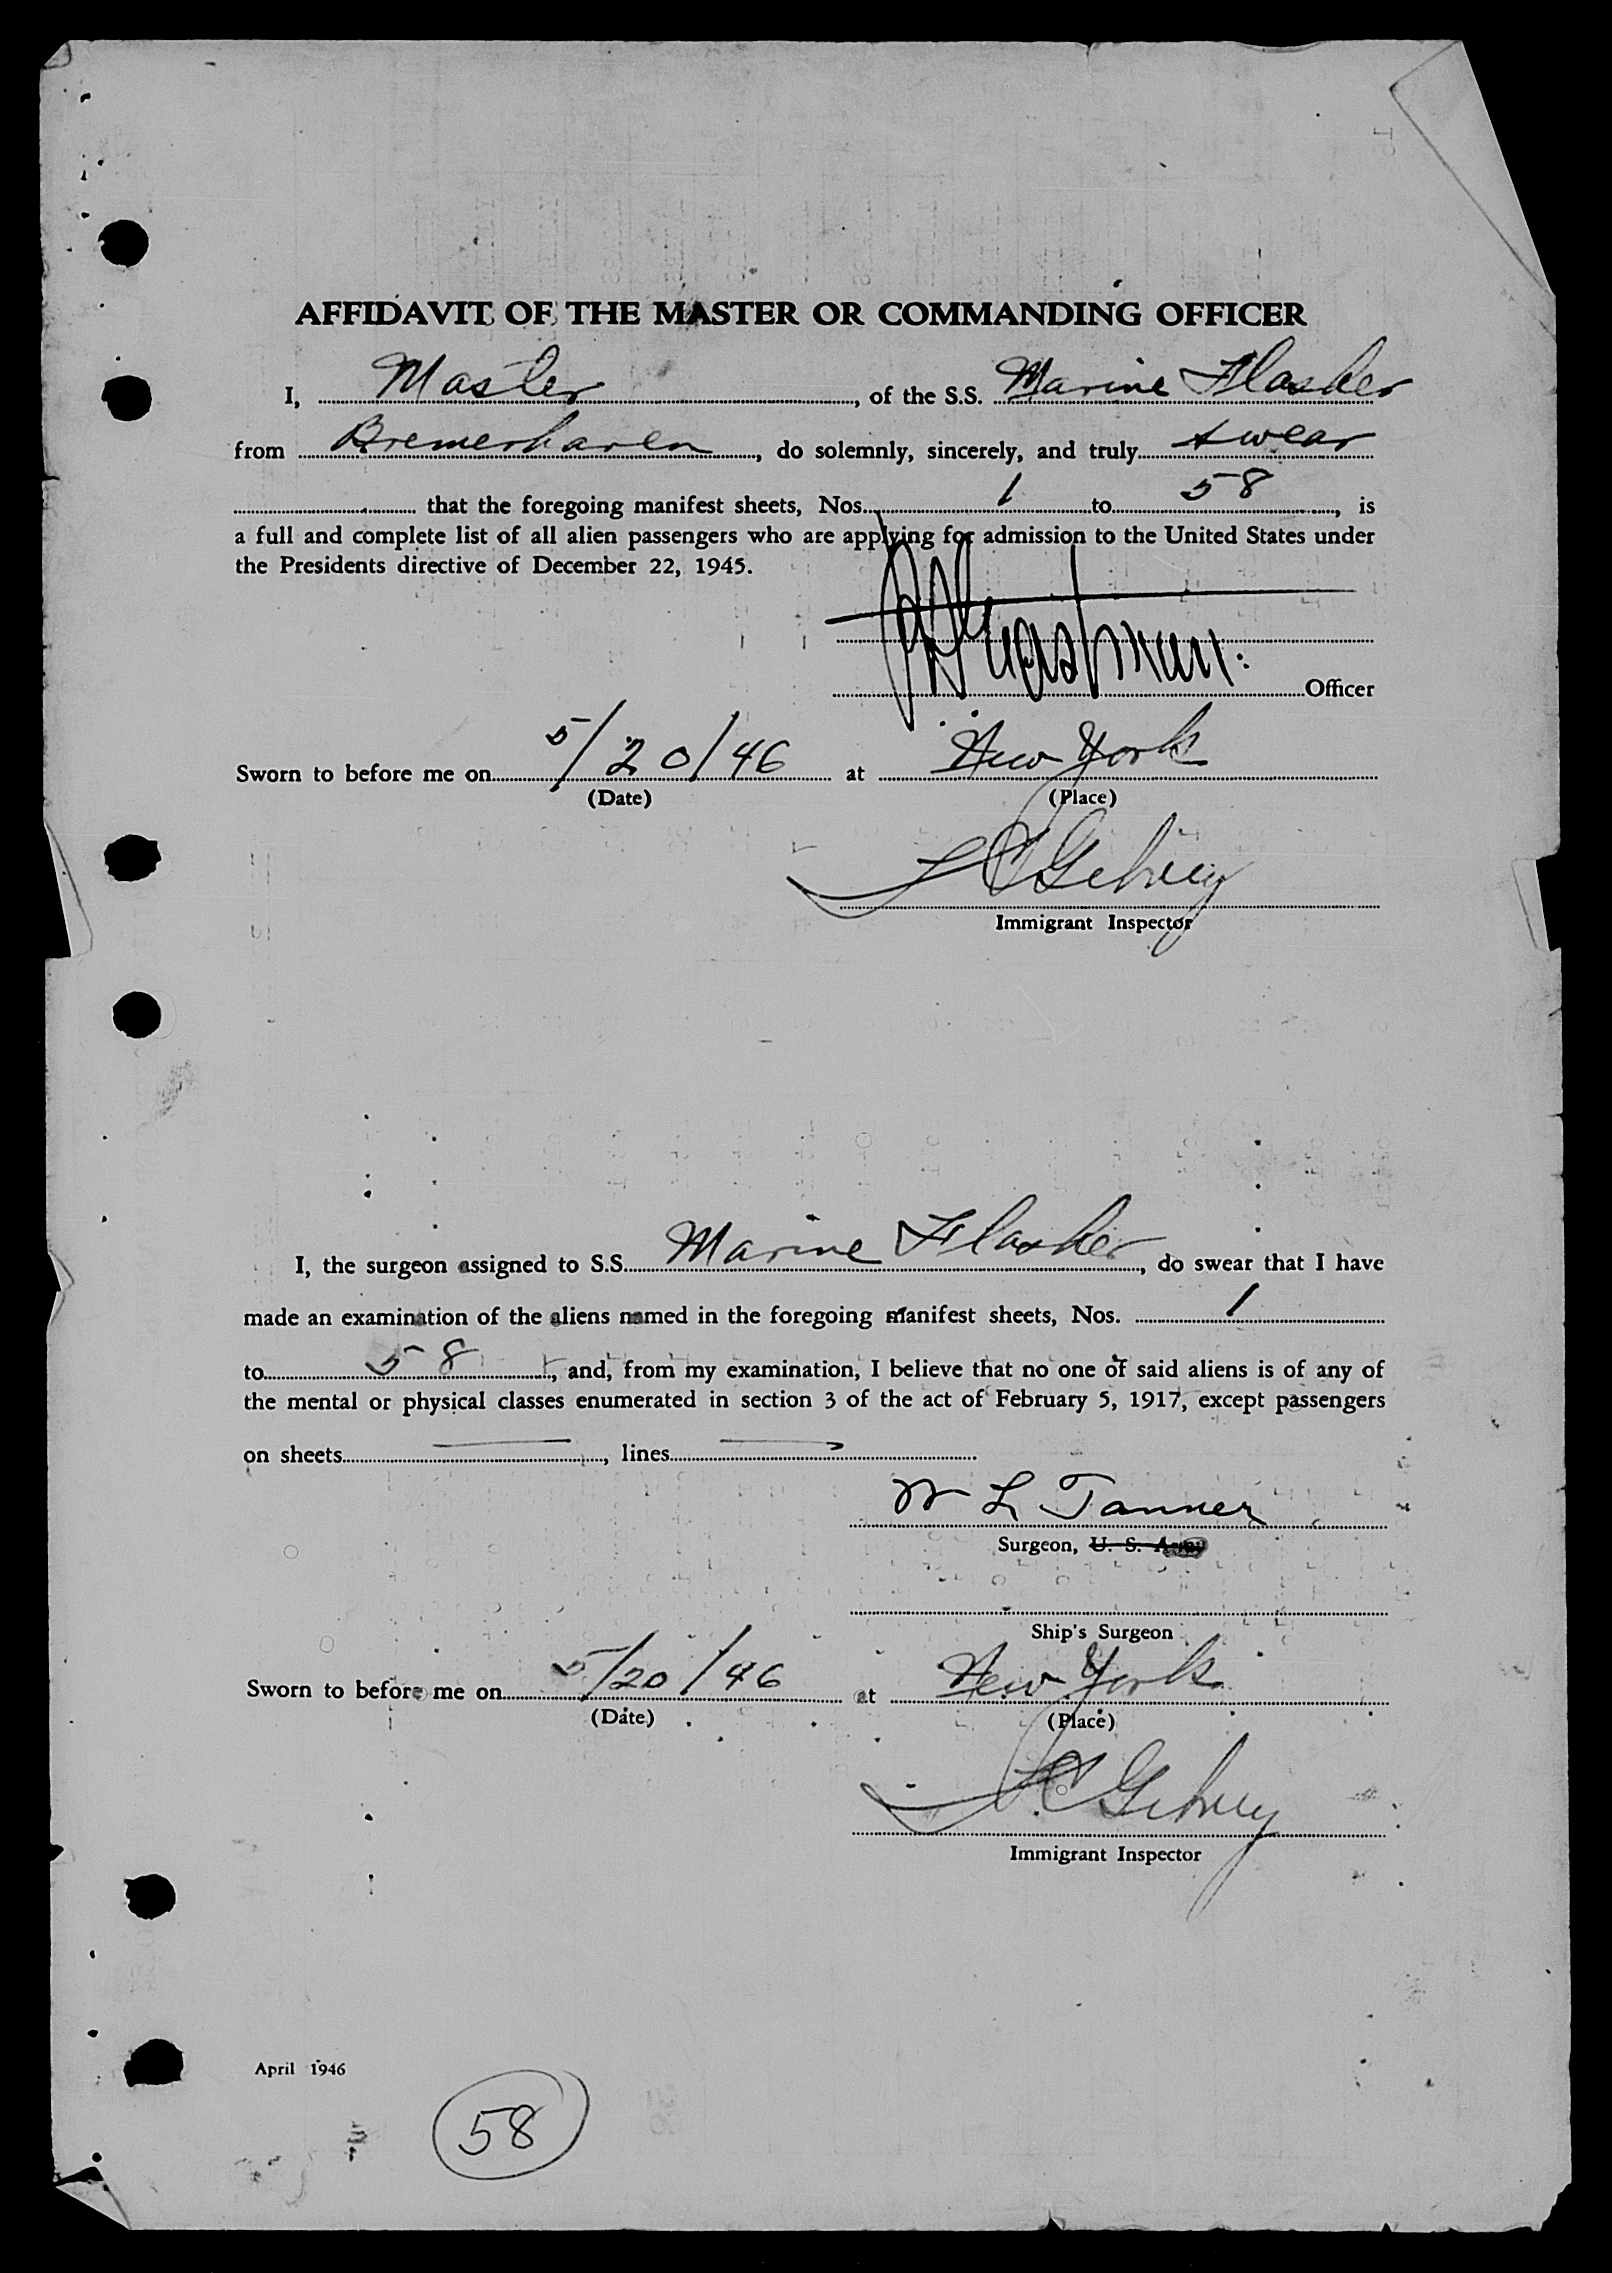 AFFIDAVIT OF THE MASTER OR COMMANDING OFFICER
I, Master, of the S.S. Marine Flasher
from Bremerhaven, do solemnly, sincerely, and truly swear
that the foregoing manifest sheets, Nos. 1 to 58, is
a full and complete list of all alien passengers who are applying for admission to the United States under
the Presidents directive of December 22, 1945.
Officer
Sworn to before me on 5/20/46 at New York
(Date) (Place)
Immigrant Inspector
I, the surgeon assigned to S.S. Marine Flasher, do swear that I have
made an examination of the aliens named in the foregoing manifest sheets, Nos. 1
to 58, and, from my examination, I believe that no one of said aliens is of any of
the mental or physical classes enumerated in section 3 of the act of February 5, 1917, except passengers
on sheets —, lines —
W L Tanner
Surgeon, U. S. Army
Ship's Surgeon
Sworn to before me on 5/20/46 at New York
(Date) (Place)
Immigrant Inspector
April 1946
58